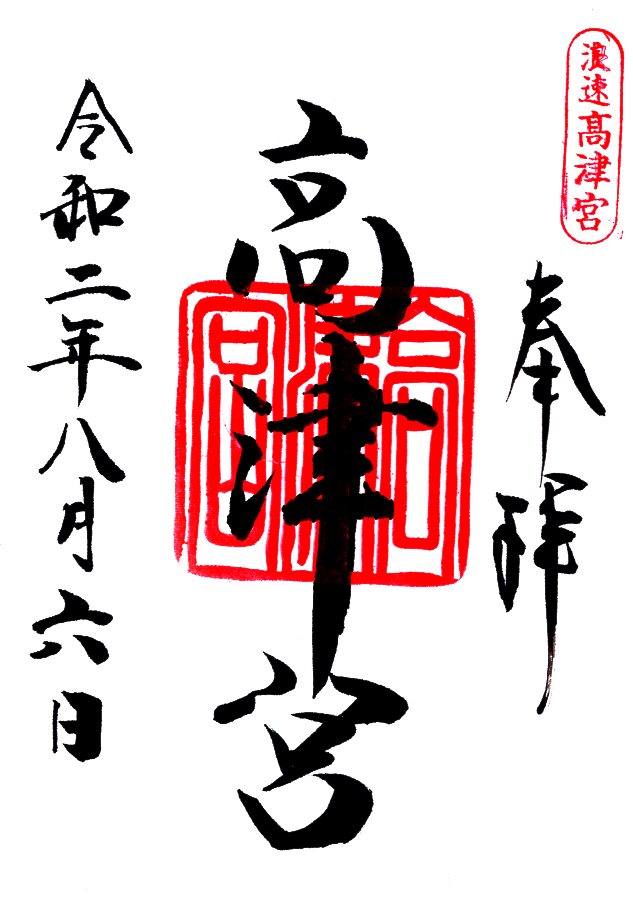 浪速高津宮
奉拝
高津宮
高津宮
令和二年八月六日